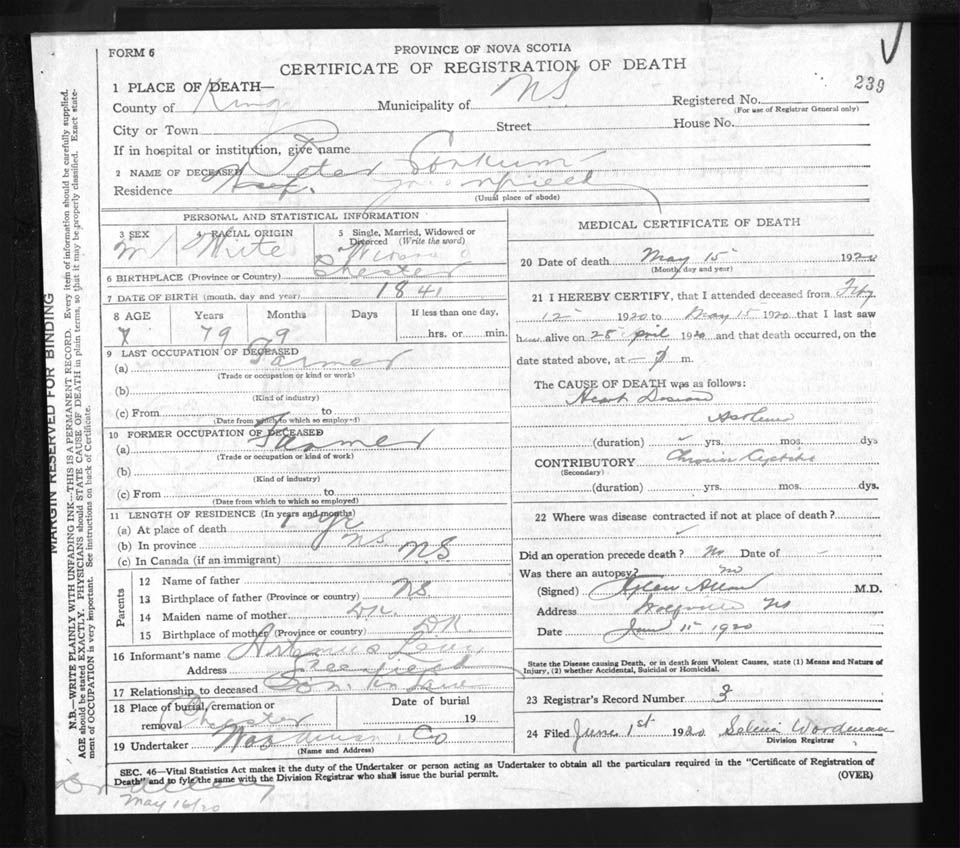 FORM 6
PROVINCE OF NOVA SCOTIA
CERTIFICATE OF REGISTRATION OF DEATH
239
1 PLACE OF DEATH—
County of Kings Municipality of N.S. Registered No.
(For use of Registrar General only)
City or Town Street House No.
If in hospital or institution, give name
2 NAME OF DECEASED Peter Corkum
Residence Greenfield
(Usual place of abode)
PERSONAL AND STATISTICAL INFORMATION
3 SEX 4 RACIAL ORIGIN 5 Single, Married, Widowed or Divorced (Write the word)
M White
6 BIRTHPLACE (Province or Country) Chester
7 DATE OF BIRTH (month, day and year) 1841
8 AGE Years Months Days If less than one day,
79 9 hrs. or min.
9 LAST OCCUPATION OF DECEASED
(a) Farmer
(Trade or occupation or kind or work)
(b)
(Kind of industry)
(c) From to
(Date from which to which so employed)
10 FORMER OCCUPATION OF DECEASED
(a) Farmer
(Trade or occupation or kind of work)
(b)
(Kind of industry)
(c) From to
(Date from which to which so employed)
11 LENGTH OF RESIDENCE (In years and months)
(a) At place of death 1 yr
(b) In province N.S.
(c) In Canada (if an immigrant) N.S.
Parents
12 Name of father
13 Birthplace of father (Province or country) NS
14 Maiden name of mother D.K.
15 Birthplace of mother (Province or country) D.K.
16 Informant's name Artemus
Address Greenfield
17 Relationship to deceased Son in Law
18 Place of burial, cremation or removal Chester
Date of burial
19
19 Undertaker Woodman Co
(Name and Address)
MEDICAL CERTIFICATE OF DEATH
20 Date of death May 15 1920
(Month, day and year)
21 I HEREBY CERTIFY, that I attended deceased from Feby
12 1920 to May 15 1920 that I last saw
h alive on 28 April 1920 and that death occurred, on the
date stated above, at m.
The CAUSE OF DEATH was as follows:
Heart Disease
(duration) yrs. mos. dys
CONTRIBUTORY Chronic Cystitis
(Secondary)
(duration) yrs. mos. dys.
22 Where was disease contracted if not at place of death?
Did an operation precede death? No Date of —
Was there an autopsy? no
(Signed) M.D.
Address Wolfville NS
Date June 1st 1920
State the Disease causing Death, or in death from Violent Causes, state (1) Means and Nature of Injury, (2) whether Accidental, Suicidal or Homicidal.
23 Registrar's Record Number 3
24 Filed June 1st 1920 Woodman
Division Registrar
SEC. 46—Vital Statistics Act makes it the duty of the Undertaker or person acting as Undertaker to obtain all the particulars required in the "Certificate of Registration of
Death" and to fyle the same with the Division Registrar who shall issue the burial permit. (OVER)
May 16/20
MARGIN RESERVED FOR BINDING
N.B.—WRITE PLAINLY WITH UNFADING INK—THIS IS A PERMANENT RECORD. Every item of information should be carefully supplied.
AGE should be stated EXACTLY. PHYSICIANS should STATE CAUSE OF DEATH in plain terms, so that it may be properly classified. Exact statement of OCCUPATION is very important. See instructions on back of Certificate.